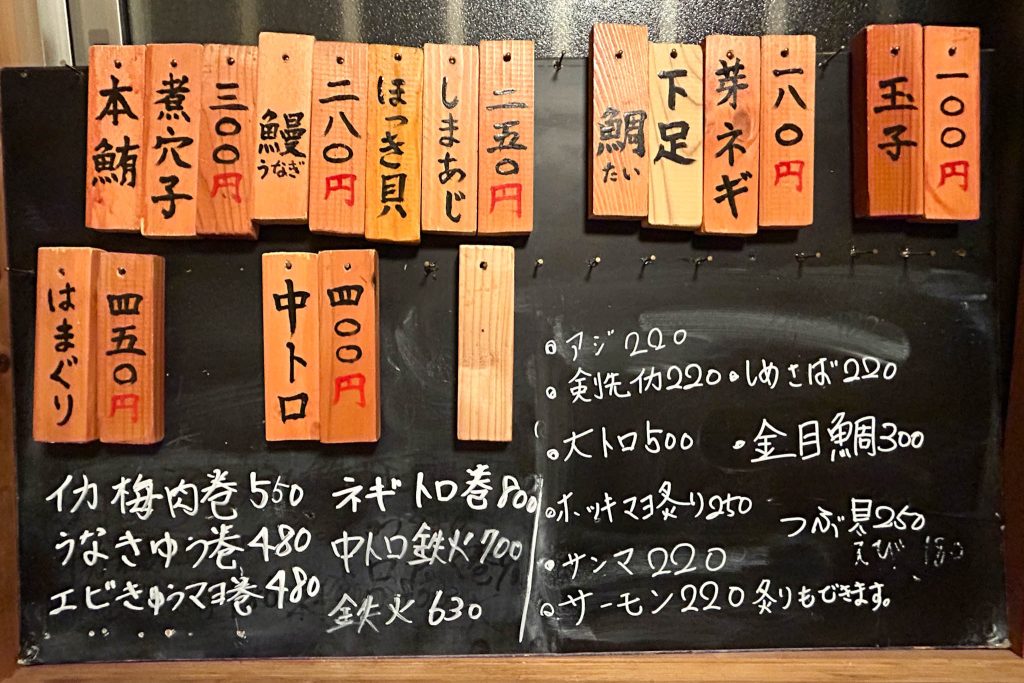 本鮪
煮穴子
三〇〇円
鰻
うなぎ
二八〇円
ほっき貝
しまあじ
二五〇円
鯛
たい
下足
芽ネギ
一八〇円
玉子
一〇〇円
はまぐり
四五〇円
中トロ
四〇〇円
イカ梅肉巻550
うなきゅう巻480
エビきゅうマヨ巻480
ネギトロ巻800
中トロ鉄火700
鉄火630
アジ220
剣先イカ220・しめさば220
大トロ500 ・金目鯛300
ホッキマヨ炙り250
つぶ貝250
えび 180
サンマ220
サーモン220炙りもできます。